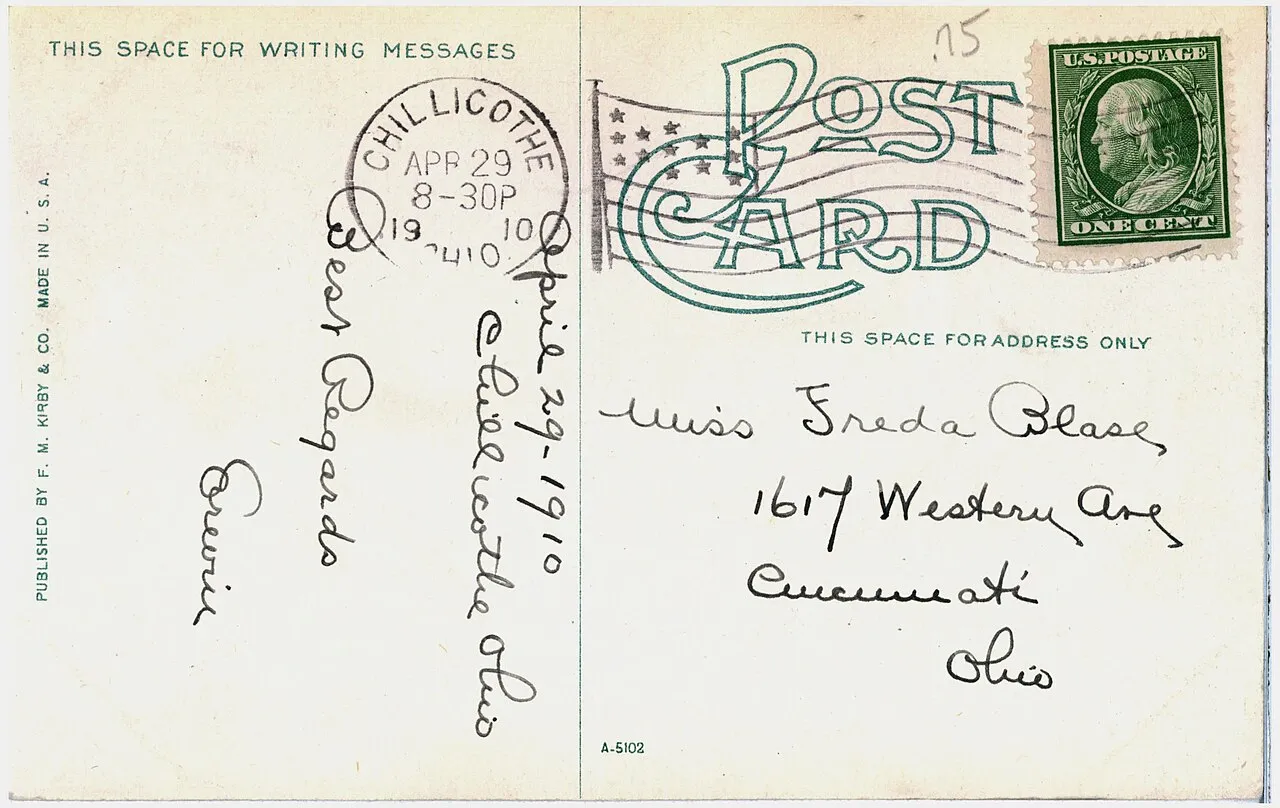 THIS SPACE FOR WRITING MESSAGES
PUBLISHED BY F. M. KIRBY & CO. MADE IN U. S. A.
CHILLICOTHE
APR 29
8-30P
19 10
April 29-1910
Chillicothe Ohio
Best Regards
.75
POST
CARD
U.S. POSTAGE
ONE CENT
THIS SPACE FOR ADDRESS ONLY
Miss Freda Blase,
1617 Western Ave
Cincinnati
Ohio
A-5102